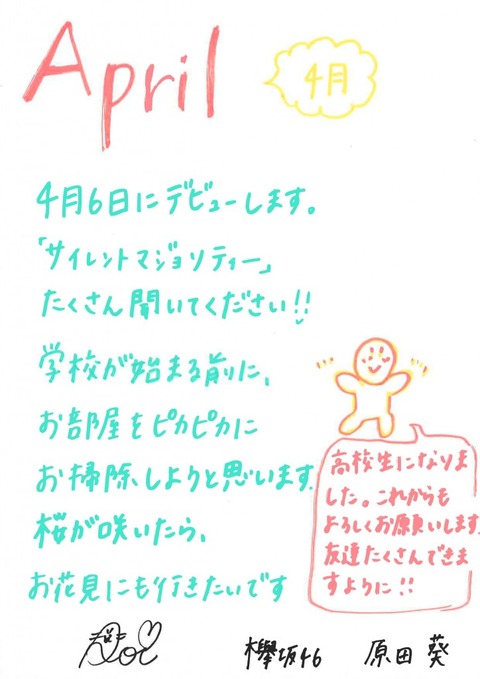 April
4月
4月6日にデビューします。
「サイレントマジョリティー」
たくさん聞いてください!!
学校が始まる前に、
お部屋をピカピカに
お掃除しようと思います。
桜が咲いたら、
お花見にも行きたいです
高校生になりま
した。これからも
よろしくお願いします。
友達たくさんできま
すように!!
欅坂46 原田 葵